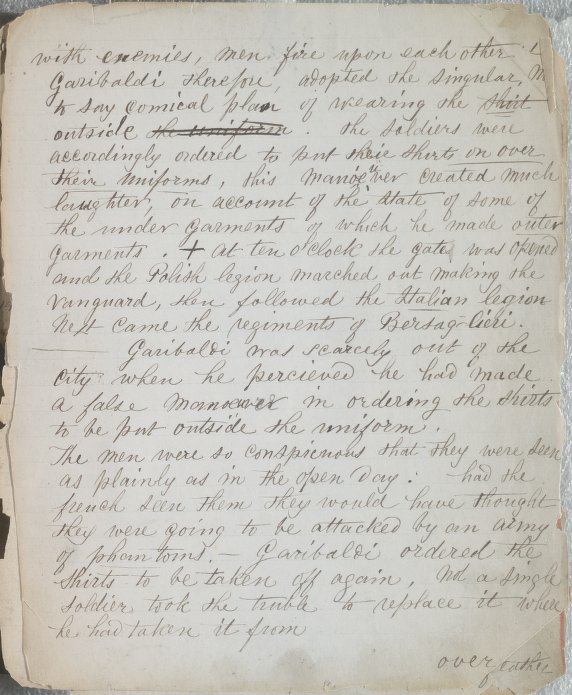 with enemies, men fire upon each other.
Garibaldi therefore, adopted the singular,
to say comical plan of wearing the shirt
outside the uniform. the soldiers were
accordingly ordered to put their shirts on over
their uniforms, this manoeuver created much
laughter, on account of the state of some of
the under garments of which he made outer
garments. + at ten o'clock the gate was opened
and the Polish legion marched out making the
vanguard, then followed the Italian legion
Next came the regiments of Bersag-lieri.
Garibaldi was scarcely out of the
city when he percieved he had made
a false manœuver in ordering the shirts
to be put outside the uniform.
The men were so conspicuous that they were seen
as plainly as in the open day: had the
french seen them they would have thought
they were going to be attacked by an army
of phantoms. - Garibaldi ordered the
shirts to be taken off again, Not a single
soldier took the truble to replace it where
he had taken it from
over